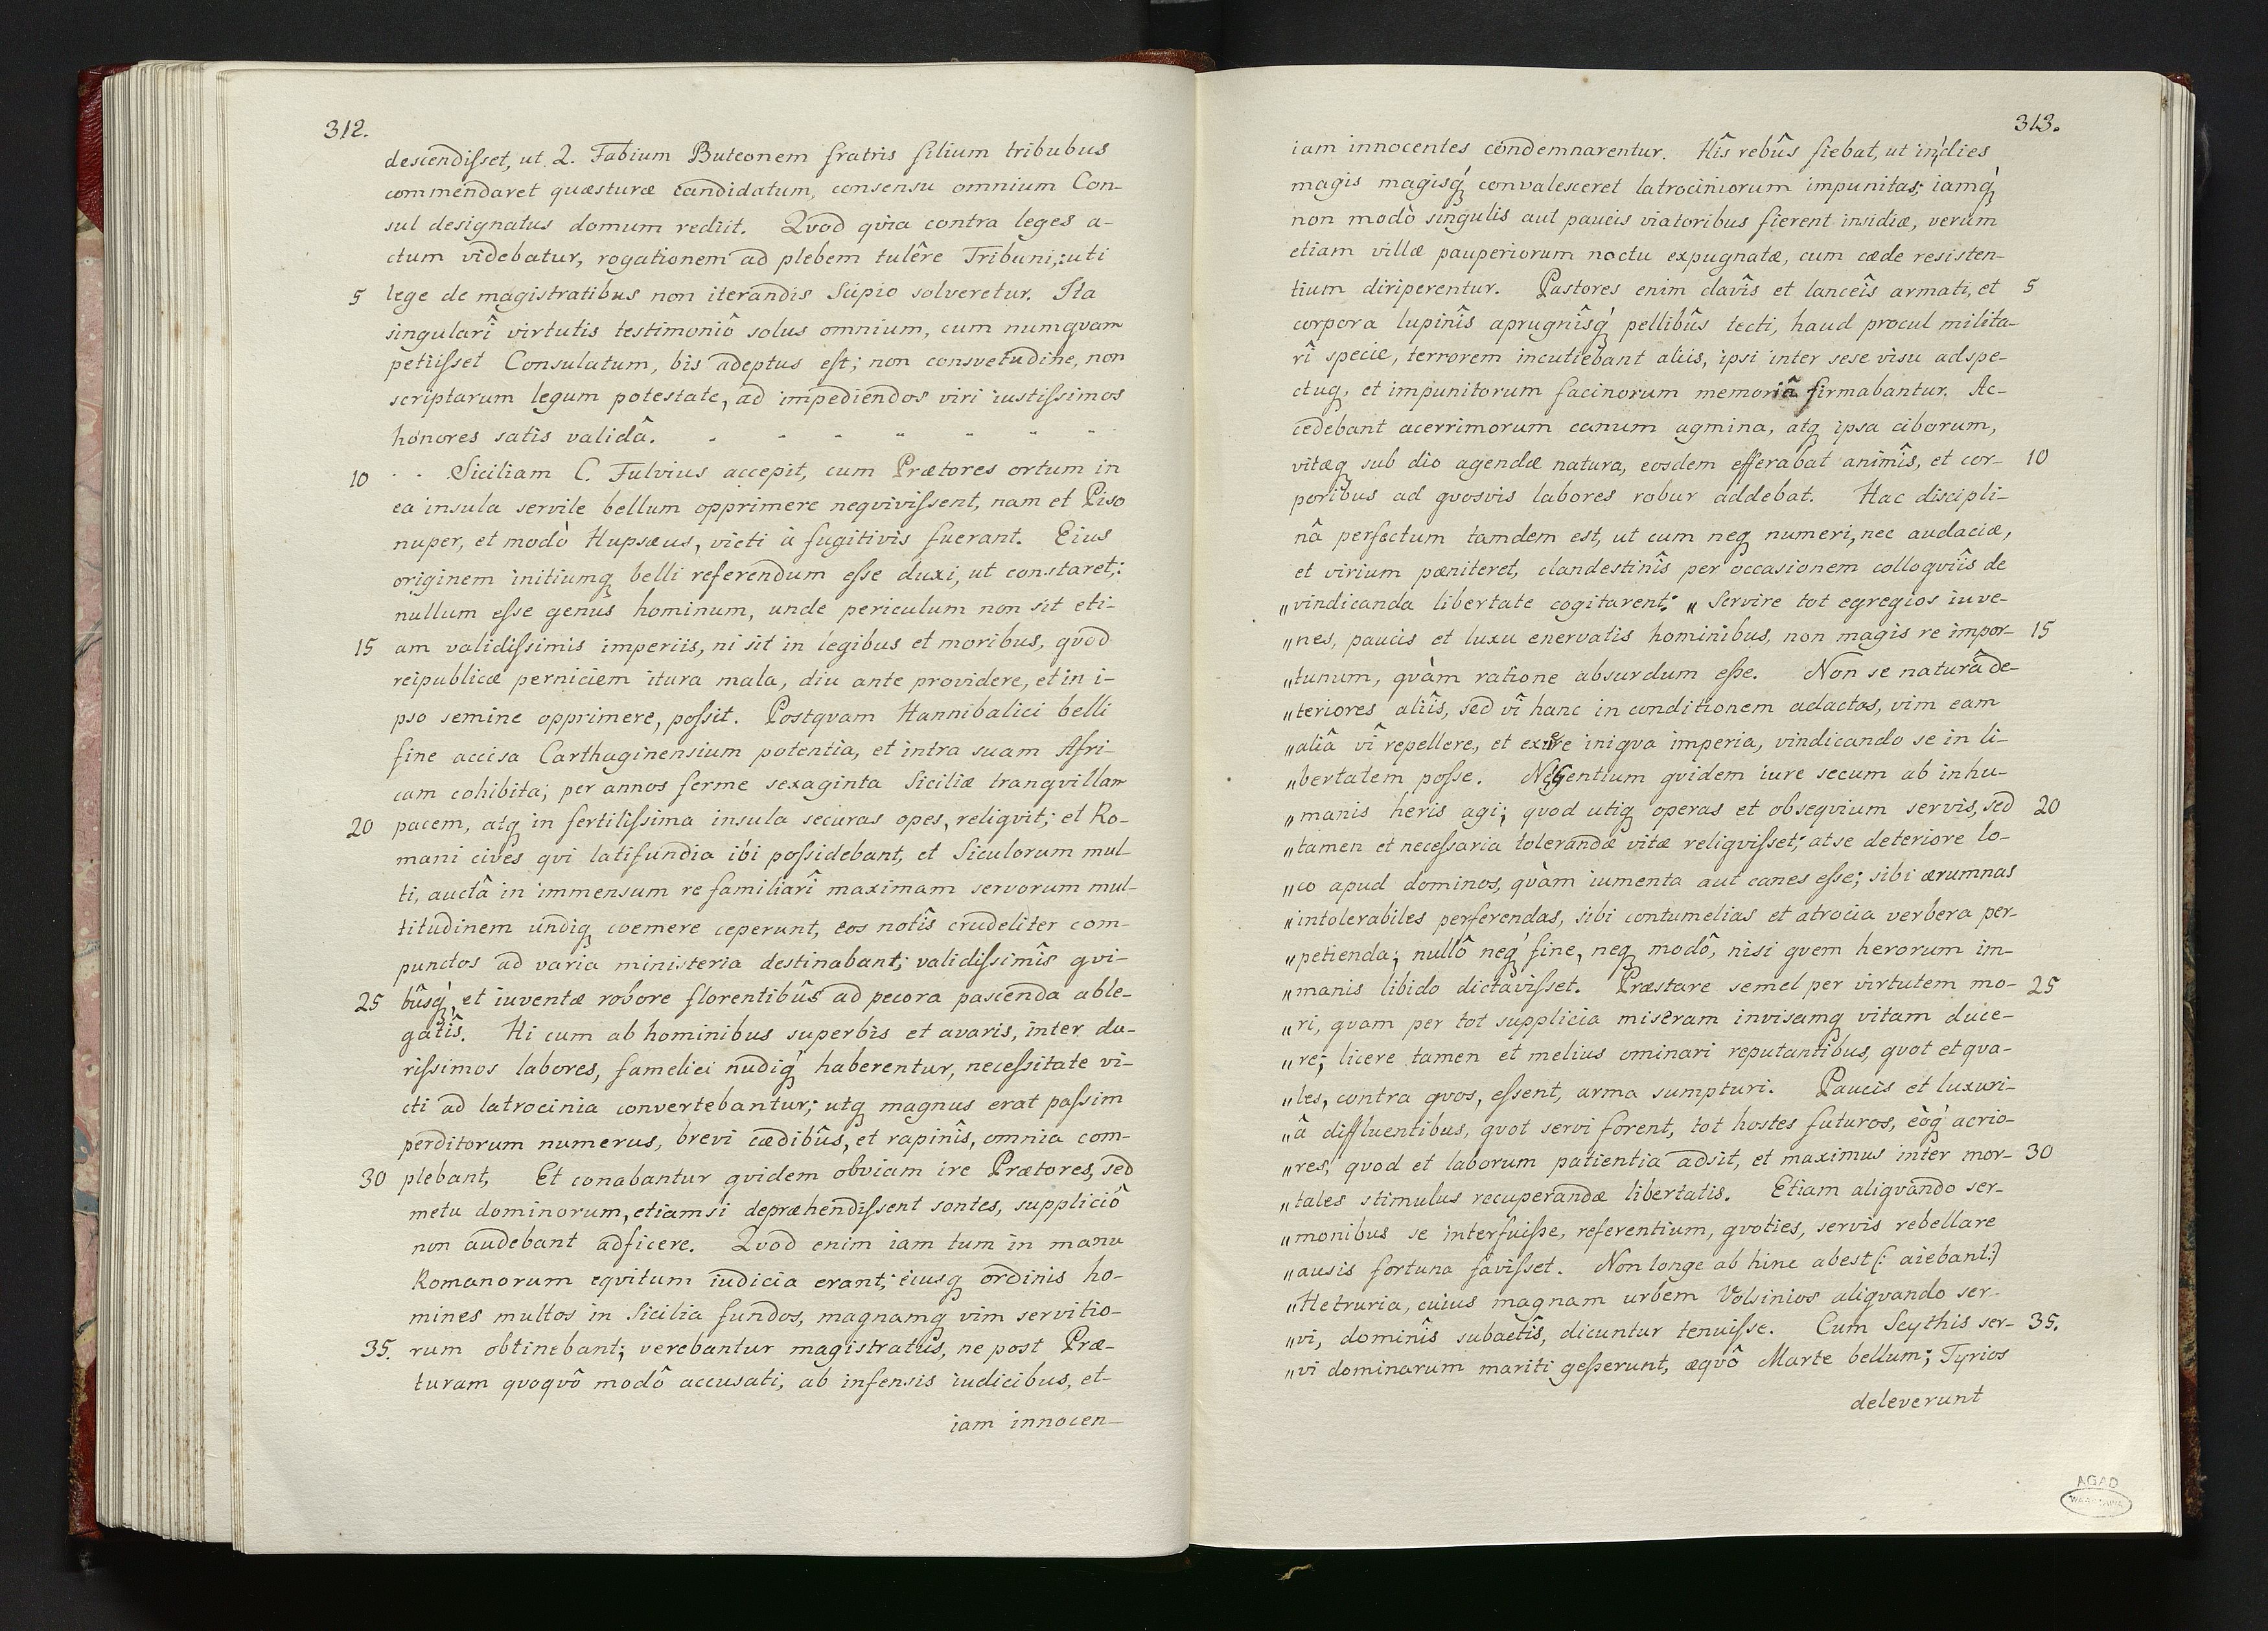 312.
descendiſset, ut Q. Fabium Buteonem fratris filium tribubus
commendaret quæsturæ candidatum, consensu omnium Con-
sul designatus domum rediit. Qvod qvia contra leges a-
ctum videbatur, rogationem ad plebem tulêre Tribuni, uti
5 lege de magistratibus non iterandis Scipio solveretur. Ita
singularî virtutis testimoniô solus omnium, cum numqvam
petiiſset Consulatum, bis adeptus eſt; non consvetudine, non
scriptarum legum potestate, ad impediendos viri iustiſsimos
honores satis validâ. - - - - - - -
10 - - Siciliam C. Fulvius accepit, cum Prætores ortum in
ea insula servile bellum opprimere neqviviſsent, nam et Piso
nuper, et modò Hupsæus, victi à fugitivis fuerant. Eius
originem initiumq belli referendum eſse duxi, ut constaret;
nullum eſse genus hominum, unde periculum non sit eti-
15 am validiſsimis imperiis, ni sit in legibus et moribus, qvod
reipublicæ perniciem itura mala, diu ante providere, et in i-
pso semine opprimere, poſsit. Postqvam Hannibalici belli
fine accisa Carthaginensium potentia, et intra suam Afri-
cam cohibita; per annos ferme sexaginta Siciliæ tranqvillam
20 pacem, atq in fertiliſsima insula securas opes, reliqvit; et Ro-
mani cives qvi latifundia ibi poſsidebant, et Siculorum mul-
ti, auctâ in immensum re familiarî maximam servorum mul-
titudinem undiq coemere ceperunt, eos notîs crudeliter com-
punctos ad varia ministeria destinabant; validiſsimîs qvi-
25 bûsq́, et iuventæ robore florentibûs ad pecora pascenda able-
gatîs. Hi cum ab hominibus superbis et avaris, inter du-
riſsimos labores, famelici nudiq́ haberentur, neceſsitate vi-
cti ad latrocinia convertebantur; utq magnus erat paſsim
perditorum numerus, brevi cædibûs, et rapinîs, omnia com-
30 plebant, Et conabantur qvidem obviam ire Prætores, sed
metu dominorum, etiamsi depræhendiſsent sontes, suppliciô
non audebant adficere. Qvod enim iam tum in manu
Romanorum eqvitum iudicia erant; eiusq ordinis ho-
mines multos in Sicilia fundos, magnamq vim servitio-
35. rum obtinebant; verebantur magistratus, ne post Præ-
turam qvoqvô modô accusati, ab infensis iudicibus, et-
iam innocen-
313.
iam innocentes condemnarentur. Hîs rebûs fiebat, ut in dies
magis magisq́ convalesceret latrociniorum impunitas; iamq́
non modò singulis aut paucis viatoribus fierent insidiæ, verùm
etiam villæ pauperiorum noctu expugnatæ, cum cæde resisten-
tium diriperentur. Pastores enim clavîs et lanceîs armati, et 5
corpora lupinîs aprugnîsq́ pellibûs tecti, haud procul milita-
rî specie, terrorem incutiebant aliis, ipsi inter sese visu adspe-
ctuq, et impunitorum facinorum memoriâ firmabantur. Ac-
cedebant acerrimorum canum agmina, atq ipsa ciborum,
vitæq sub dio agendæ natura, eosdem efferabat animîs, et cor- 10
poribus ad qvosvis labores robur addebat. Hac discipli-
nâ perfectum tamdem est, ut cum neq numeri, nec audaciæ,
et virium pæniteret, clandestinîs per occasionem colloqviîs de
„vindicanda libertate cogitarent: „Servire tot egregios iuve-
„nes, paucis et luxu enervatis hominibus, non magis re impor- 15
„tunum, qvàm ratione absurdum eſse. Non se naturâ de-
„teriores aliîs, sed vî hanc in conditionem adactos, vim eam
„aliâ vî repellere, et exuere iniqva imperia, vindicando se in li-
„bertatem poſse. Ne gentium qvidem iure secum ab inhu-
„manis heris agi; qvod utiq operas et obseqvium servis, sed 20
„tamen et neceſsaria tolerandæ vitæ reliqviſset; at se deteriore lo-
„co apud dominos, qvàm iumenta aut canes eſse; sibi ærumnas
„intolerabiles perferendas, sibi contumelias et atrocia verbera per-
„petienda; nullô neq́ fine, neq modô, nisi qvem herorum im-
„manis libido dictaviſset. Præstare semel per virtutem mo- 25
„ri, qvam per tot supplicia miseram invisamq vitam duce-
„re; licere tamen et melius ominari reputantibus, qvot et qva-
„les, contra qvos, eſsent, arma sumpturi. Paucis et luxuri-
„â diffluentibus, qvot servi forent, tot hostes futuros, eòq́ acrio-
„res, qvod et laborum patientia adsit, et maximus inter mor- 30
„tales stimulus recuperandæ libertatis. Etiam aliqvando ser-
„monibus se interfuiſse, referentium, qvoties, servis rebellare
„ausis fortuna faviſset. Non longe ab hinc abest (: aiebant:)
„Hetruria, cuius magnam urbem Volsinios aliqvando ser-
„vi, dominîs subactîs, dicuntur tenuiſse. Cum Scythis ser- 35.
„vi dominarum mariti geſserunt, æqvô Marte bellum; Tyrios
deleverunt
AGAD
WARSZAWA